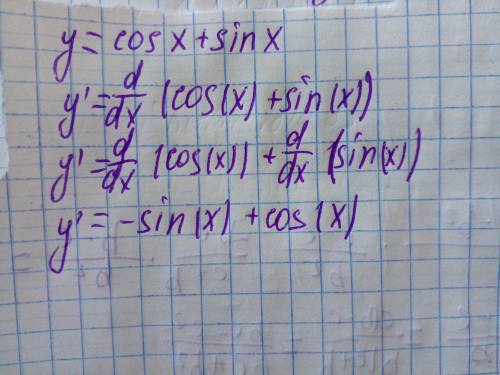 y = cosx + sinx
y' = d/dx (cos(x) + sin(x))
y' = d/dx (cos(x)) + d/dx (sin(x))
y' = -sin(x) + cos(x)